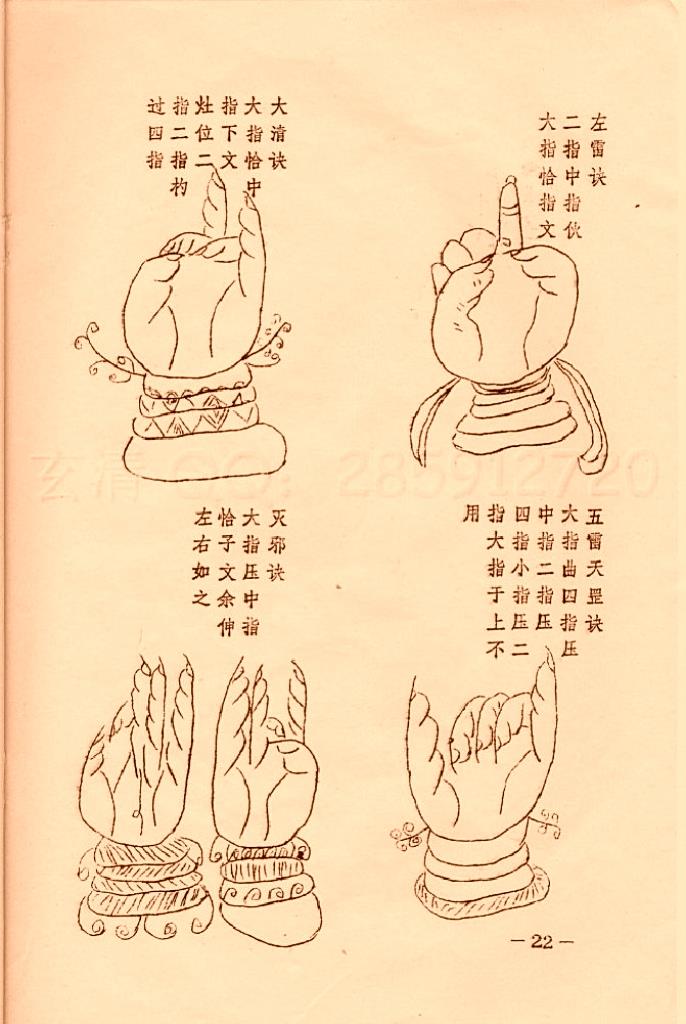 左雷诀
二指中指伙
大指恰指文
大清诀
大指恰中
指下文
灶位二
指二指杓
过四指
五雷天罡诀
大指曲四指压
中指二指压
四指小指压二
指大指于上不
用
灭邪诀
大指压中指
恰子文余伸
左右如之
玄清 QQ: 285912720
－22－